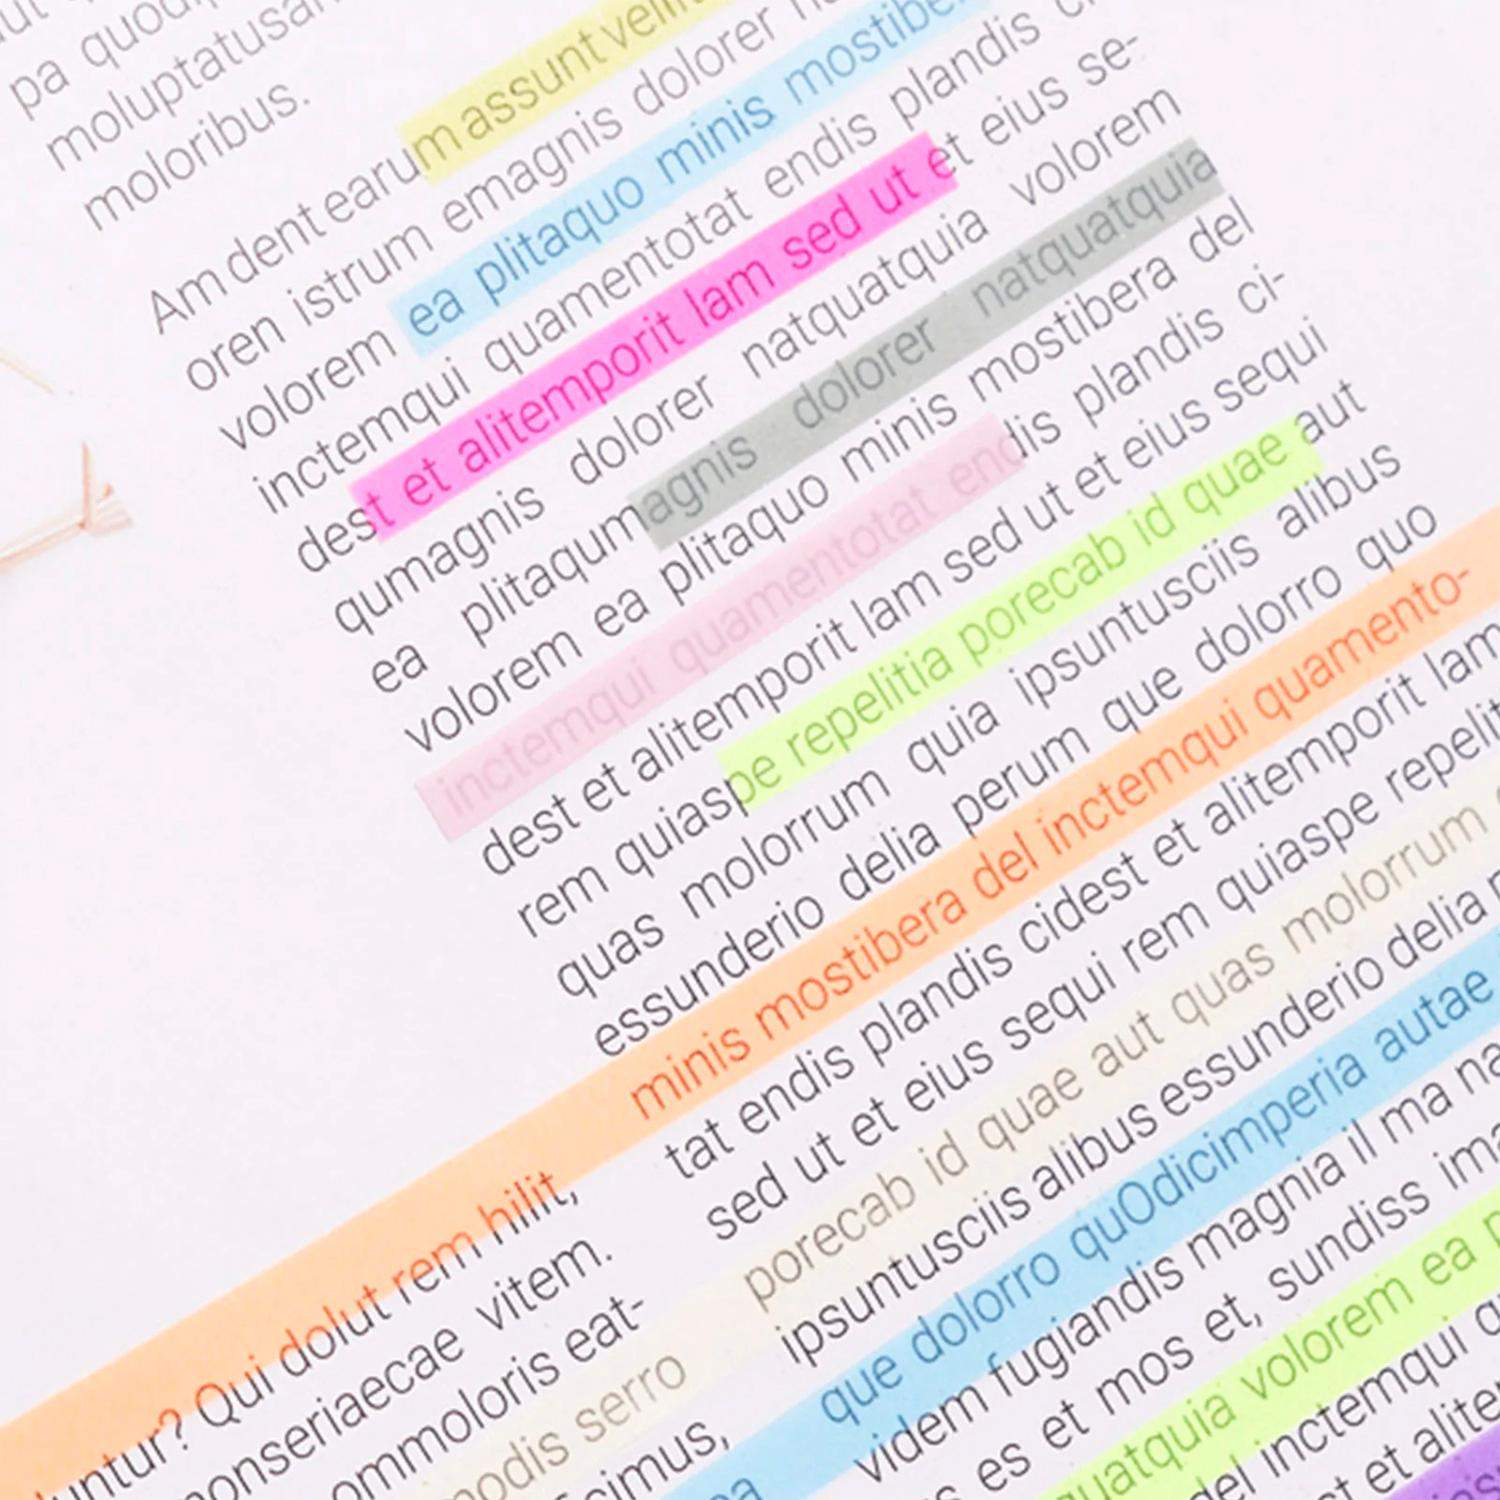 moluptatusan
moloribus.
Am dent earum assunt
oren istrum emagnis dolorer
volorem ea plitaquo minis mostiber
inctemqui quamentotat endis plandis
dest et alitemporit lam sed ut et eius se-
qumagnis dolorer natquatquia volorem
ea plitaqumagnis dolorer natquatquia
volorem ea plitaquo minis mostibera del
inctemqui quamentotat endis plandis ci-
dest et alitemporit lam sed ut et eius sequi
rem quiaspe repelitia porecab id quae aut
quas molorrum quia ipsuntusciis alibus
essunderio delia perum que dolorro quo
minis mostibera del inctemqui quamento-
tat endis plandis cidest et alitemporit lam
sed ut et eius sequi rem quiaspe repelit
porecab id quae aut quas molorrum
ipsuntusciis alibus essunderio delia
que dolorro quOdicimperia autae
videm fugiandis magnia il ma na
es et mos et, sundiss ima
uatquia volorem ea p
del inctemqui
st et alite
untur? Qui dolut rem hilit,
onseriaecae vitem.
ommoloris eat-
modis serro
cimus,